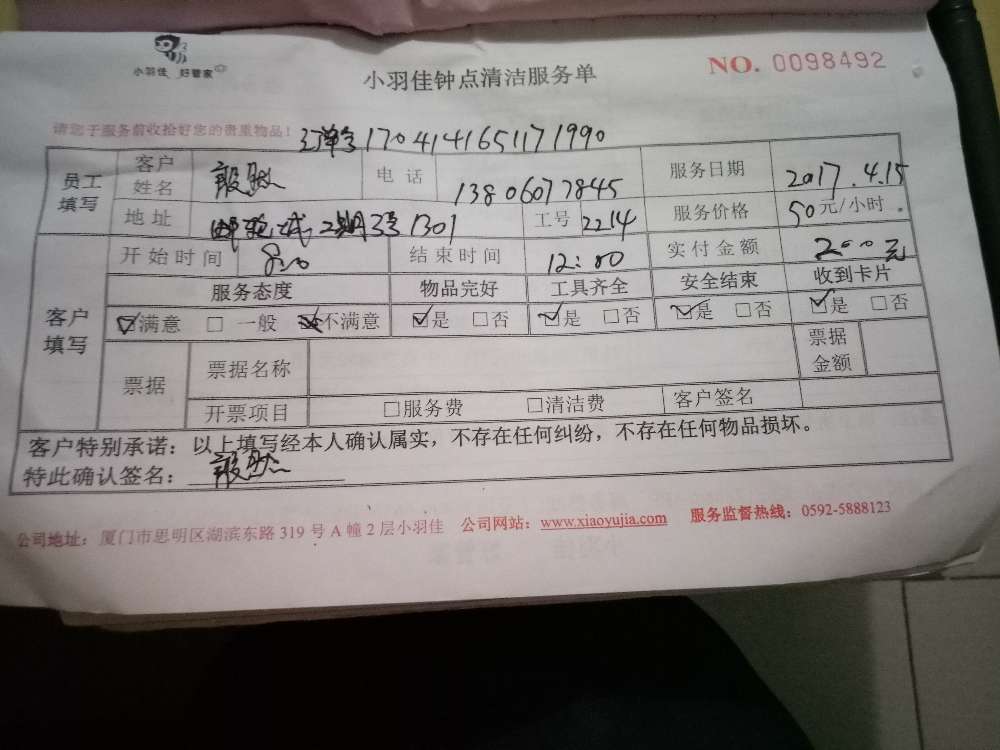 小羽佳 好管家
小羽佳钟点清洁服务单
NO. 0098492
请您于服务前收拾好您的贵重物品！
订单号1704141651171990
员工填写 客户姓名 电话 13806077845 服务日期 2017.4.15
地址 邮轮城二期3号1301 工号 2214 服务价格 50元/小时
客户填写 开始时间 8:00 结束时间 12:00 实付金额 200元
服务态度 物品完好 工具齐全 安全结束 收到卡片
☑满意 □一般 不满意 ☑是 □否 ☑是 □否 ☑是 □否 ☑是 □否
票据 票据名称 票据金额
开票项目 □服务费 □清洁费 客户签名
客户特别承诺：以上填写经本人确认属实，不存在任何纠纷，不存在任何物品损坏。
特此确认签名：
公司地址：厦门市思明区湖滨东路319号A幢2层小羽佳 公司网站：www.xiaoyujia.com 服务监督热线：0592-5888123